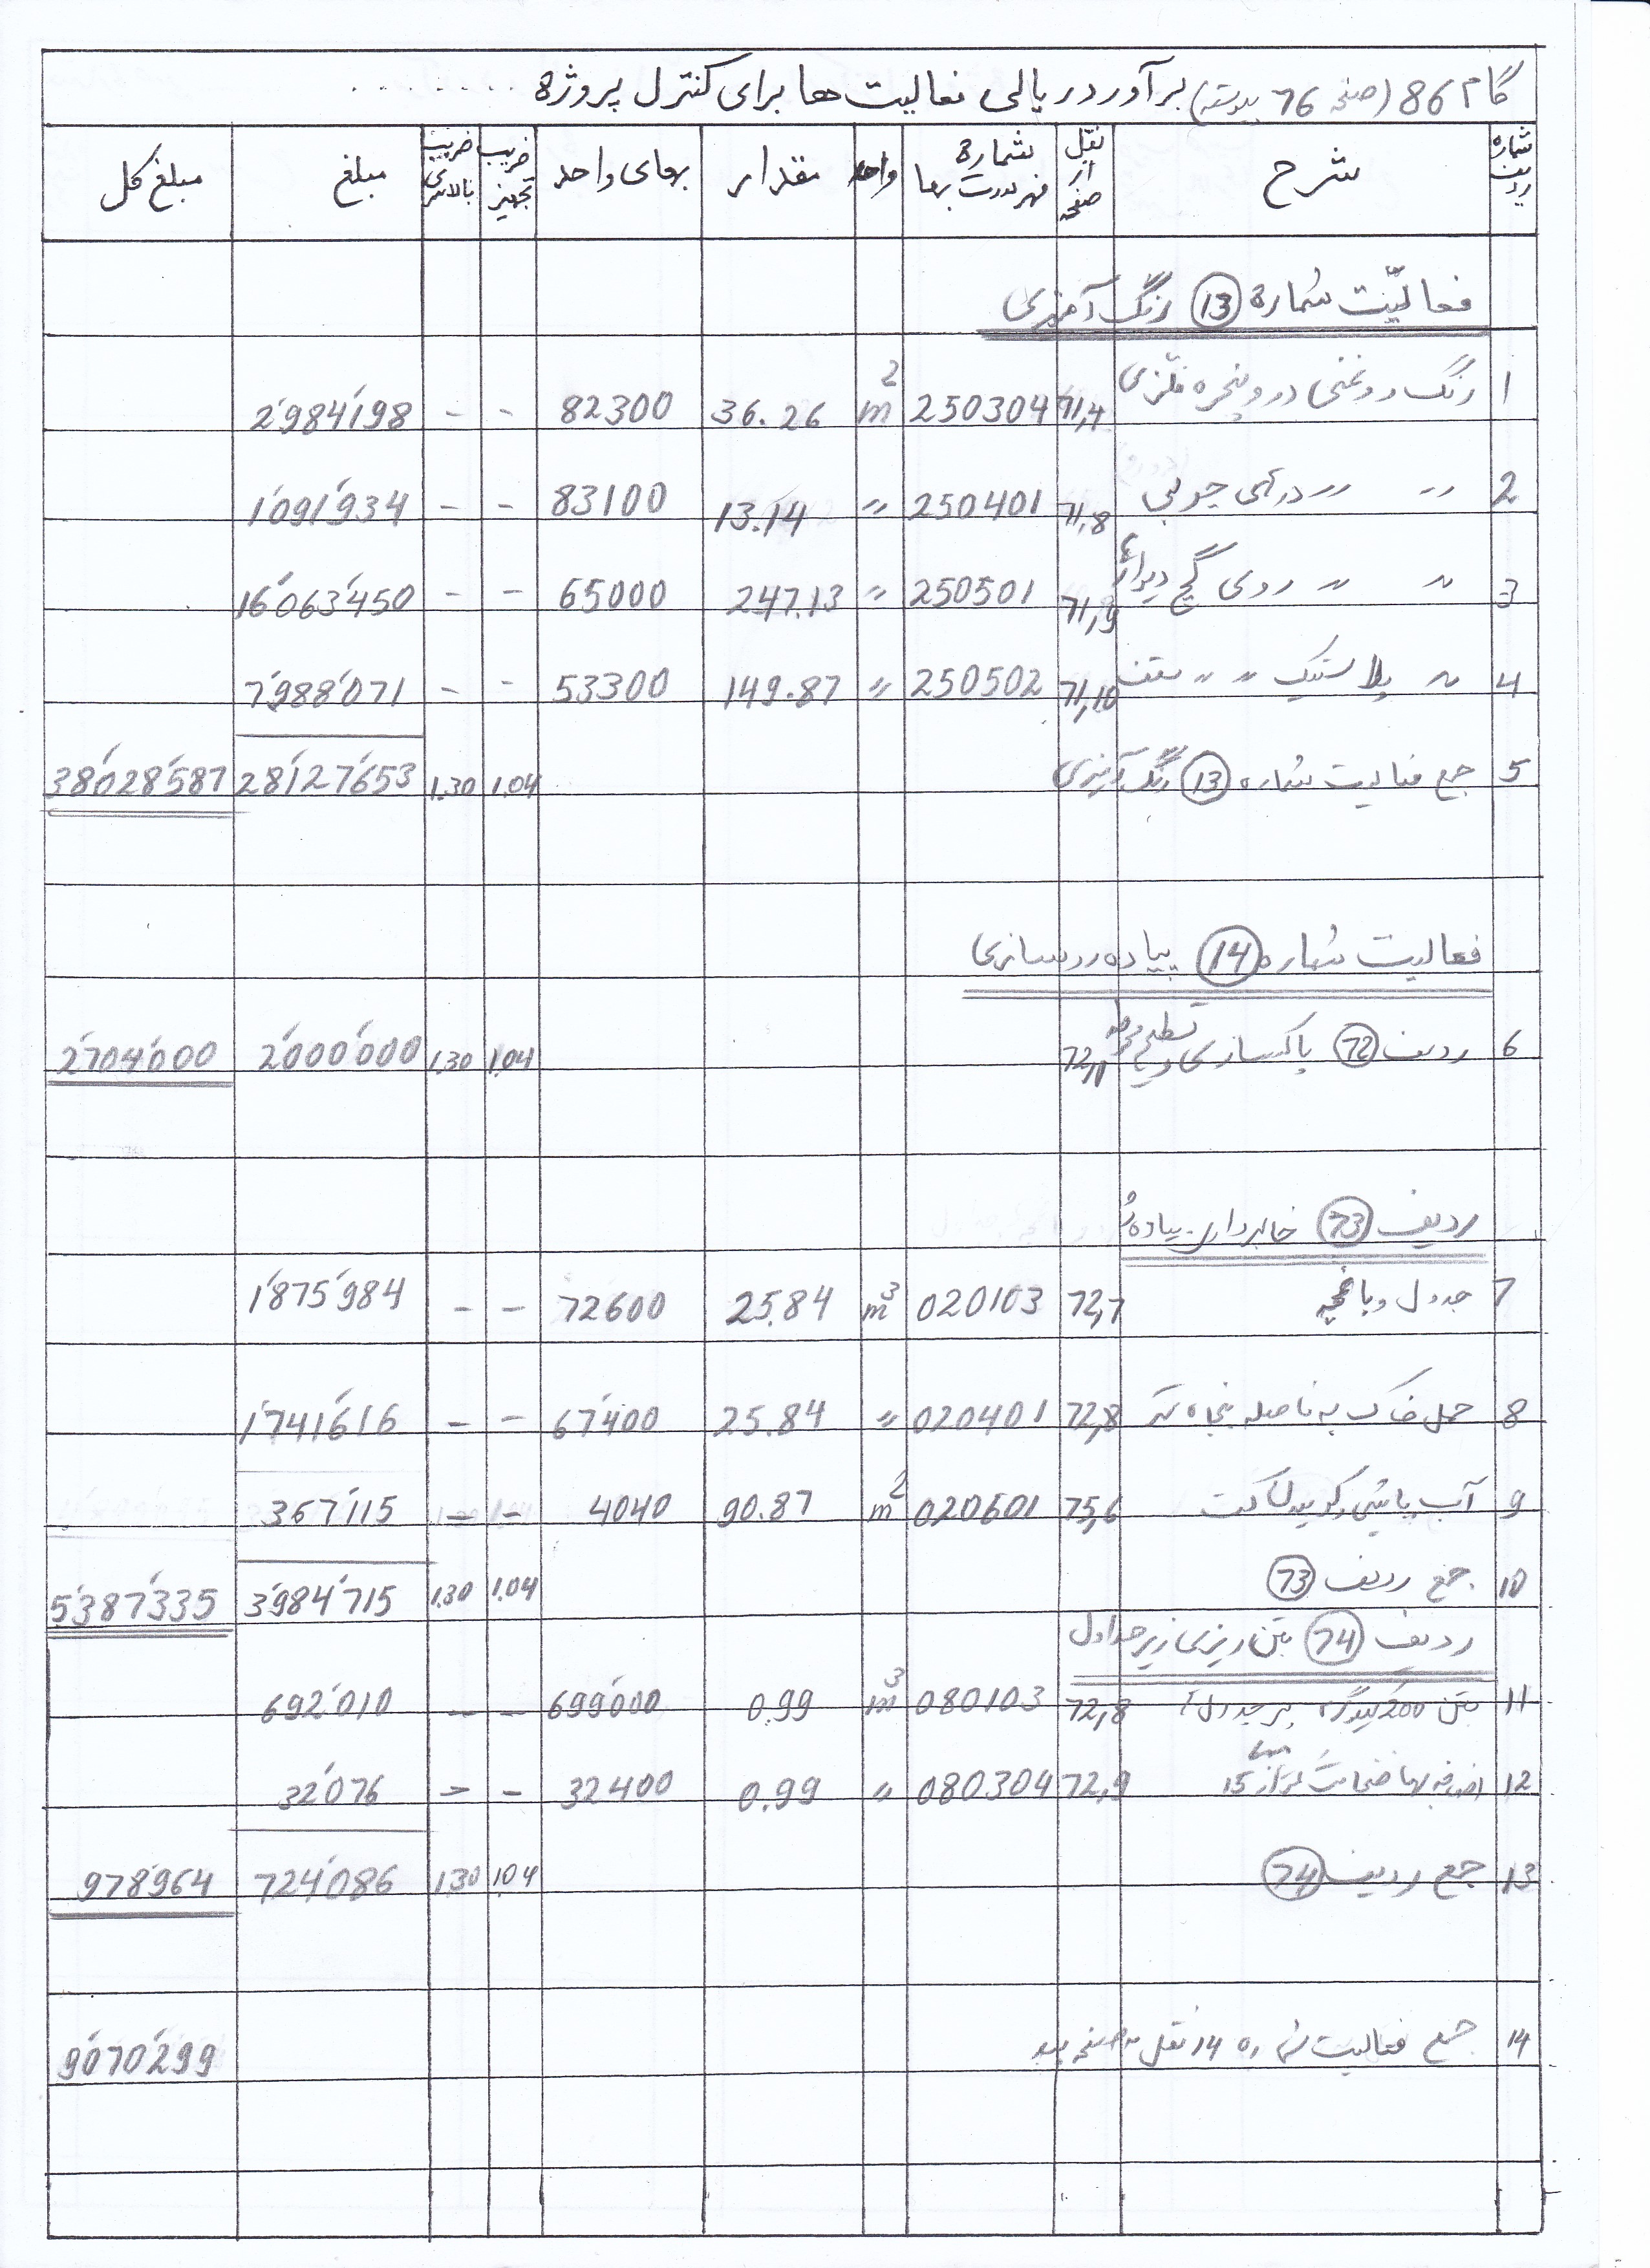 گام 86 (صفحه 76 پیوسته) برآورد ریالی فعالیت ها برای کنترل پروژه . . . . . . .
شماره ردیف شرح نقل از صفحه شماره فهرست بها واحد مقدار بهای واحد ضریب تجهیز ضریب بالاسری مبلغ مبلغ کل
فعالیّت شماره 13 رنگ آمیزی
1 رنگ روغنی در و پنجره فلزی 71,4 250304 m2 36.26 82300 - - 2'984'198
2 " " درهای چوبی 71,8 250401 " 13.14 83100 - - 1'091'934
3 " " روی گچ دیوارها 71,9 250501 " 247.13 65000 - - 16'063'450
4 " پلاستیک " " سقف 71,10 250502 " 149.87 53300 - - 7'988'071
5 جمع فعالیت شماره 13 رنگ آمیزی 1.04 1.30 28'127'653 38'028'587
فعالیت شماره 14 پیاده رو سازی
6 ردیف 72 پاکسازی و تسطیح 1.04 1.30 2'000'000 2'704'000
ردیف 73 خاکبرداری پیاده رو
7 جدول و باغچه 72,7 020103 m3 25.84 72600 - - 1'875'984
8 حمل خاک به فاصله پنجاه متر 72,8 020401 " 25.84 67400 - - 1'741'616
9 آب پاشی و کوبیدن 75,6 020601 m2 90.87 4040 - - 367'115
10 جمع ردیف 73 1.04 1.30 3'984'715 5'387'335
ردیف 74 بتن ریزی زیر جداول
11 بتن 200 کیلوگرم زیر جدول ها 72,8 080103 m3 0.99 699'000 - - 692'010
12 اضافه بها ضخامت کمتر از 15 72,9 080304 " 0.99 32400 - - 32'076
13 جمع ردیف 74 1.04 1.30 724'086 978'964
14 جمع فعالیت شماره 14 نقل به صفحه بعد 9'070'299